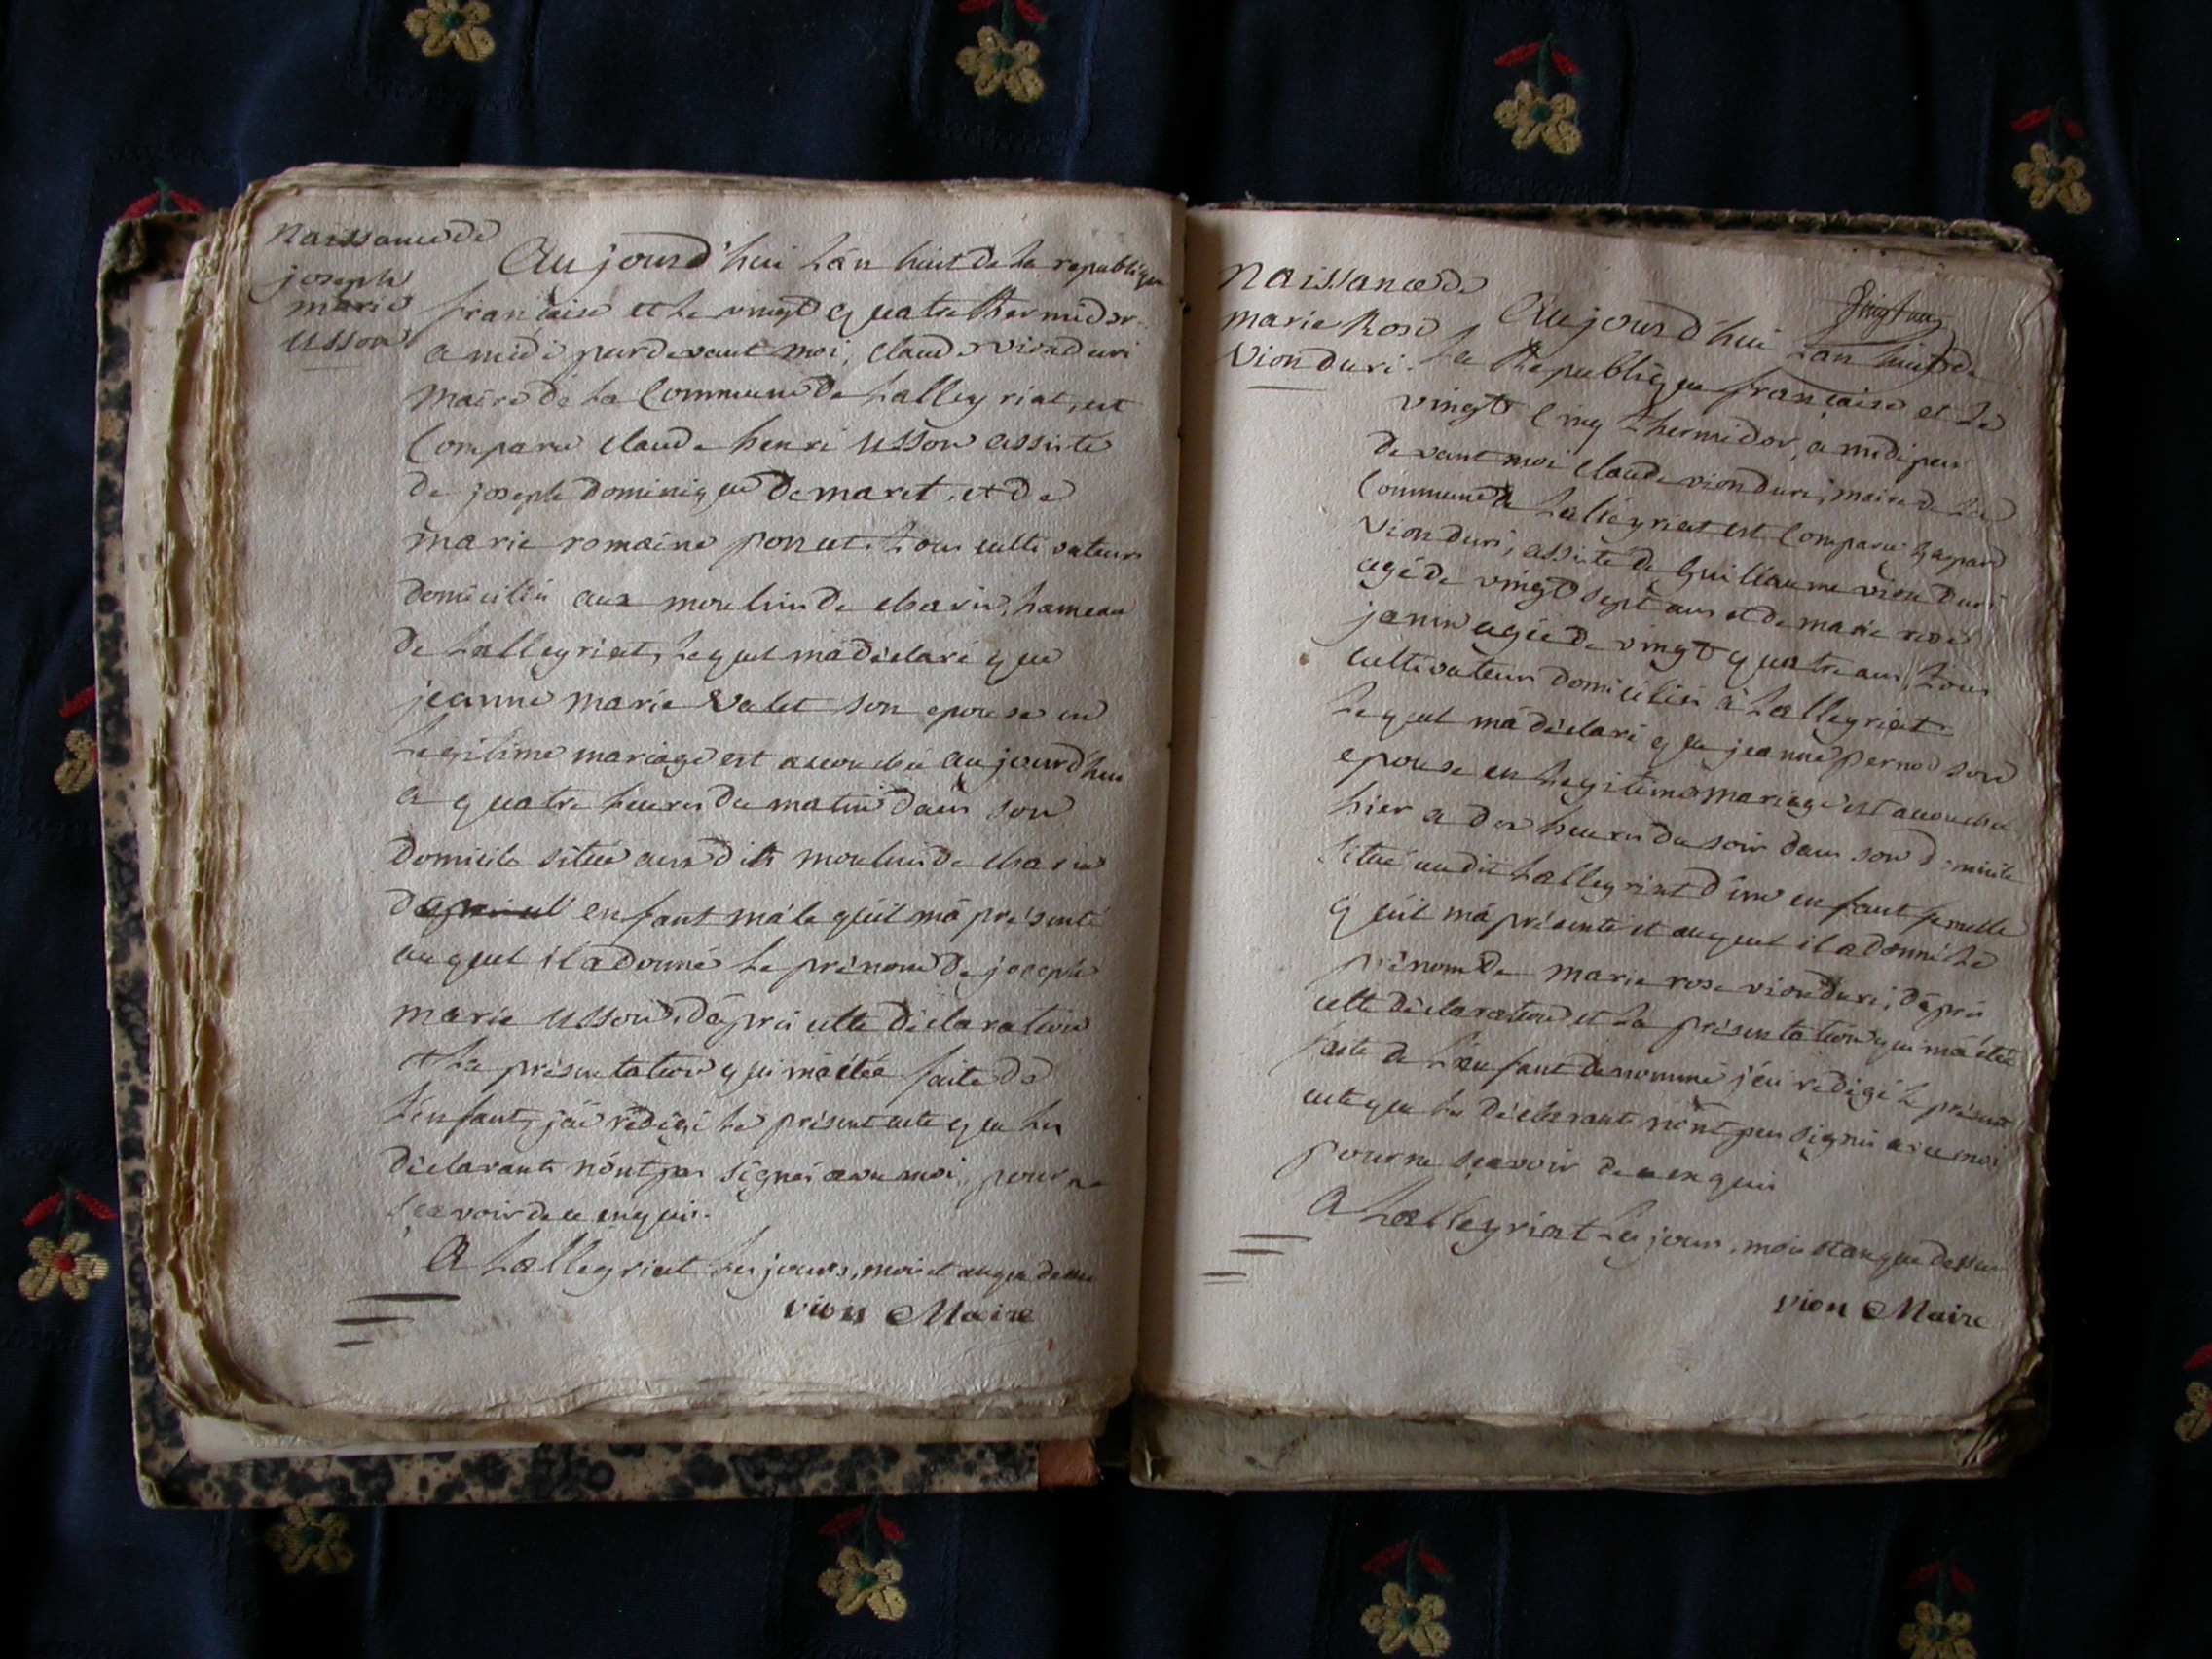 Naissance de
joseph
marie
Usson
Aujourd'hui L'an huit de La republique
française et Le vingt quatre thermidor
a midi pardevant moi, Claude vionduri
maire de La Commune de Lalleyriat, est
Comparu Claude henri Usson assisté
de joseph Dominique Demaret, et de
marie romaine poncet, tous cultivateurs
domiciliés aux moulins de charix, hameau
de Lalleyriat, Lequel m'a déclaré que
jeanne marie Valet son epouse en
Legitime mariage est accouchée aujourd'hui
a quatre heures du matin dans son
Domicile situé aux dits moulins de charix
enfant mâle qu'il m'a présenté
auquel il a donné Le prénom de joseph
marie Usson, d'après cette déclaration
et La présentation qui m'a étée faite de
L'enfant, j'ai rédigé Le présent acte que Les
déclarants n'ont pas signés avec moi, pour ne
sçavoir de ce enquis.
A Lalleyriat Les jours, mois et an que dessus
vion Maire
Naissance de
marie Rose
Vionduri.
Aujourd'hui L'an huit de
La Republique française et Le
vingt Cinq thermidor, a midi par
devant moi Claude vionduri, maire de La
Commune de Lalleyriat est Comparu gaspard
Vionduri, assisté de Guillaume vionduri
agé de vingt sept ans et de marie rose
janin agée de vingt quatre ans, tous
cultivateurs domiciliés à Lalleyriat
Lequel m'a déclaré que jeanne pernod son
epouse en Legitime mariage est accouchée
hier a dix heures du soir dans son domicile
situé au dit Lalleyriat d'un enfant femelle
qu'il m'a présenté et auquel il a donné Le
prénom de marie rose vionduri, d'après
cette déclaration et La présentation qui m'a étée
faite de L'enfant denommé j'ai redigé Le présent
acte que Les déclarants n'ont pas signés avec moi
pour ne sçavoir de ce enquis
A Lalleyriat Les jours, mois et an que dessus
vion Maire